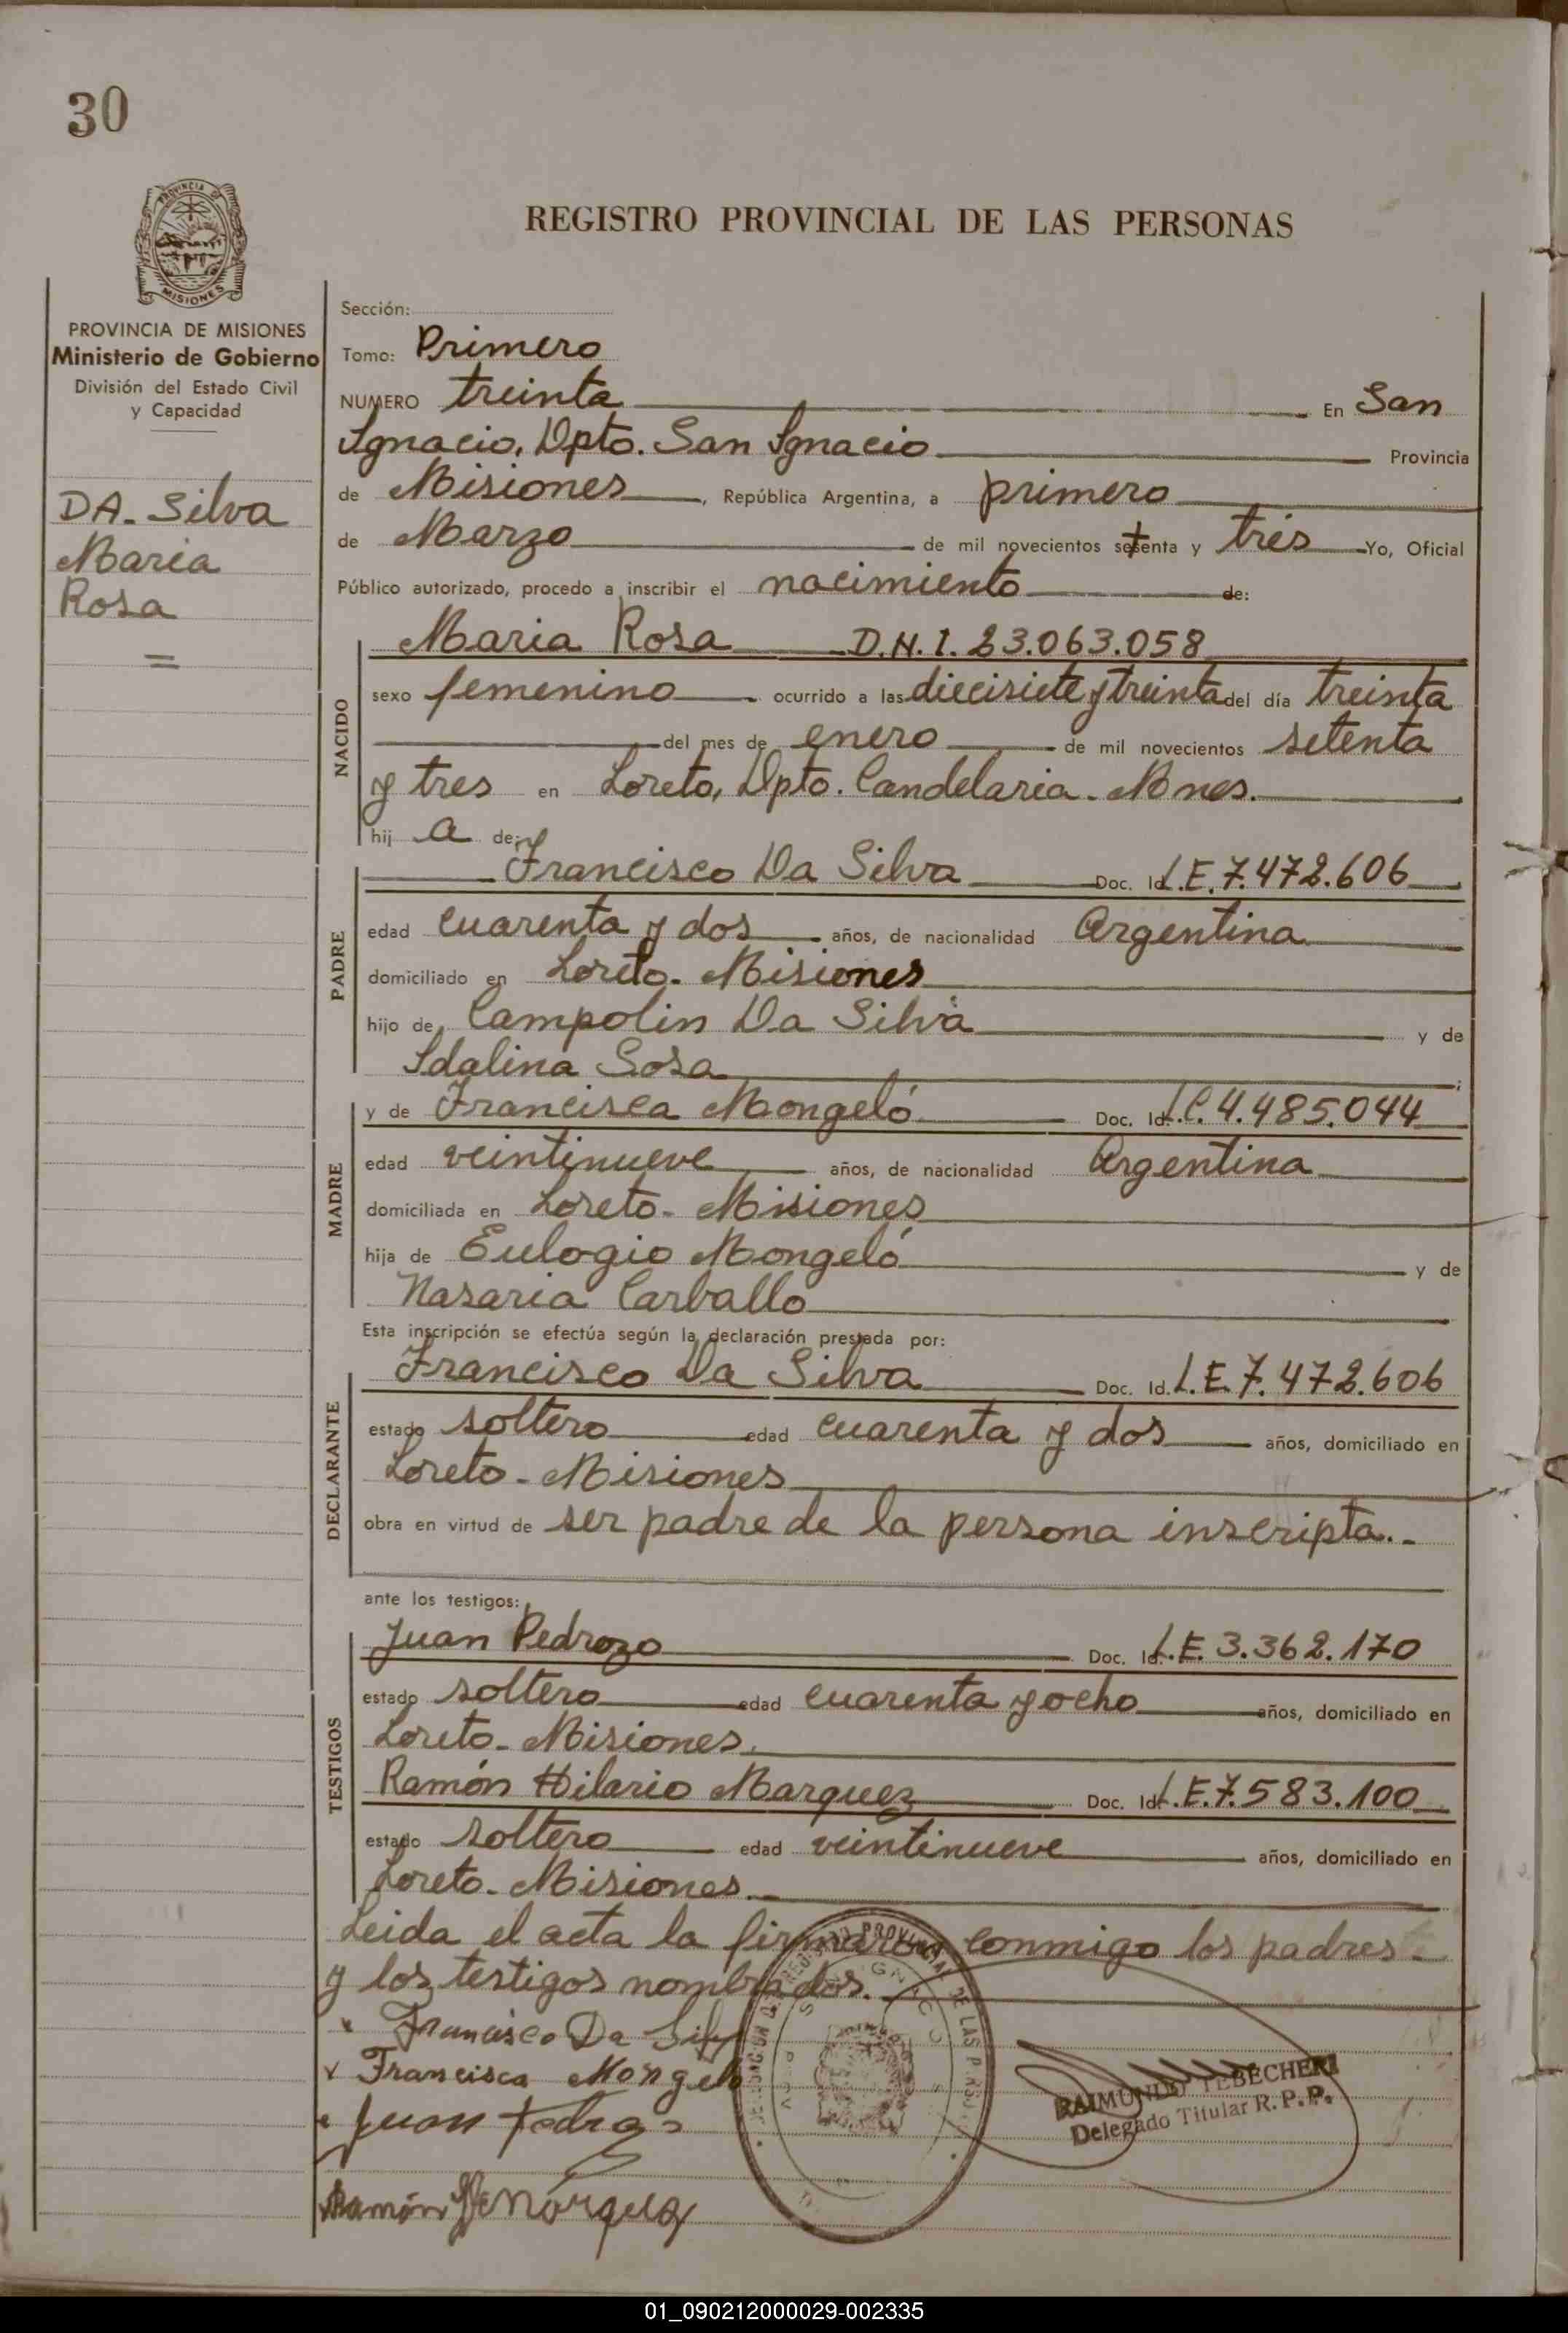 30
PROVINCIA DE
MISIONES
REGISTRO PROVINCIAL DE LAS PERSONAS
PROVINCIA DE MISIONES
Ministerio de Gobierno
División del Estado Civil
y Capacidad
DA. Silva
Maria
Rosa
=
Sección:
Tomo: Primero
NUMERO treinta En San
Ignacio, Dpto. San Ignacio Provincia
de Misiones, República Argentina, a primero
de Marzo de mil novecientos setenta y trés Yo, Oficial
Público autorizado, procedo a inscribir el nacimiento de:
NACIDO
Maria Rosa D.N.I. 23.063.058
sexo femenino ocurrido a las diecisiete y treinta del día treinta
del mes de enero de mil novecientos setenta
y tres en Loreto, Dpto. Candelaria. Mnes.
hij a de:
PADRE
Francisco Da Silva Doc. Id. L.E. 7.472.606
edad cuarenta y dos años, de nacionalidad Argentina
domiciliado en Loreto. Misiones
hijo de Campolin Da Silva y de
Idalina Sosa ;
MADRE
y de Francisca Mongeló Doc. Id. L.C. 4.485.044
edad veintinueve años, de nacionalidad Argentina
domiciliada en Loreto. Misiones
hija de Eulogio Mongeló y de
Nasaria Carballo
Esta inscripción se efectúa según la declaración prestada por:
DECLARANTE
Francisco Da Silva Doc. Id. L.E. 7.472.606
estado soltero edad cuarenta y dos años, domiciliado en
Loreto - Misiones
obra en virtud de ser padre de la persona inscripta..-
ante los testigos:
TESTIGOS
Juan Pedrozo Doc. Id. L.E. 3.362.170
estado soltero edad cuarenta y ocho años, domiciliado en
Loreto - Misiones.
Ramón Hilario Marquez Doc. Id. L.E. 7.583.100
estado soltero edad veintinueve años, domiciliado en
Loreto - Misiones.
Leida el acta la firmaron conmigo los padres.
y los testigos nombrados.
Francisco Da Silv
Francisca Mongelo
Juan Pedrozo
RAIMUNDO TEBECHERI
Delegado Titular R. P. P.
Ramón H Marquez
01_090212000029-002335